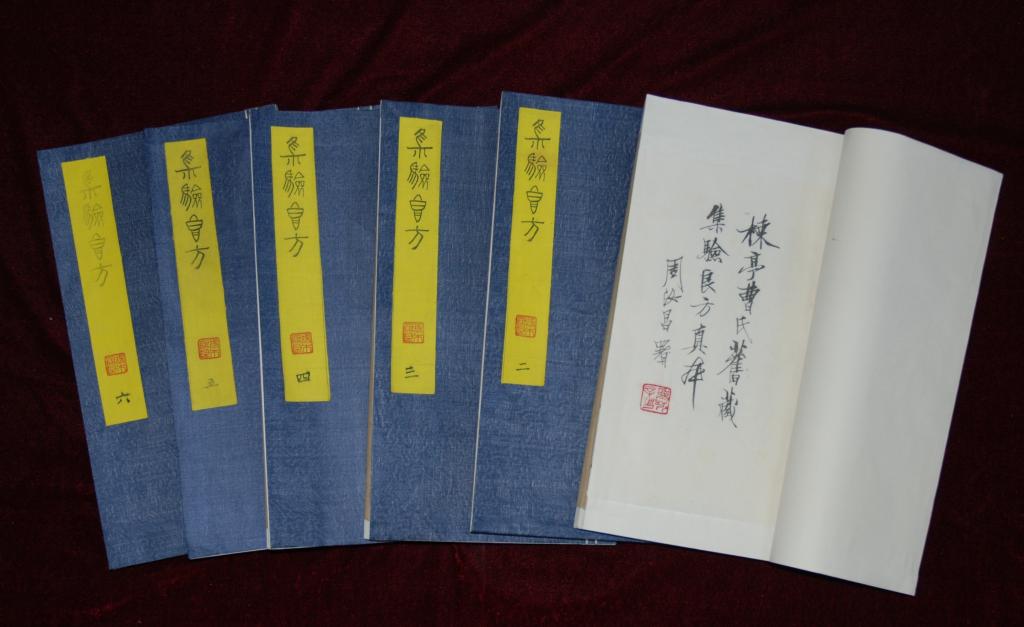 楝亭曹氏舊藏
集驗良方真本
周汝昌署
集驗良方
二
集驗良方
三
集驗良方
四
集驗良方
五
集驗良方
六